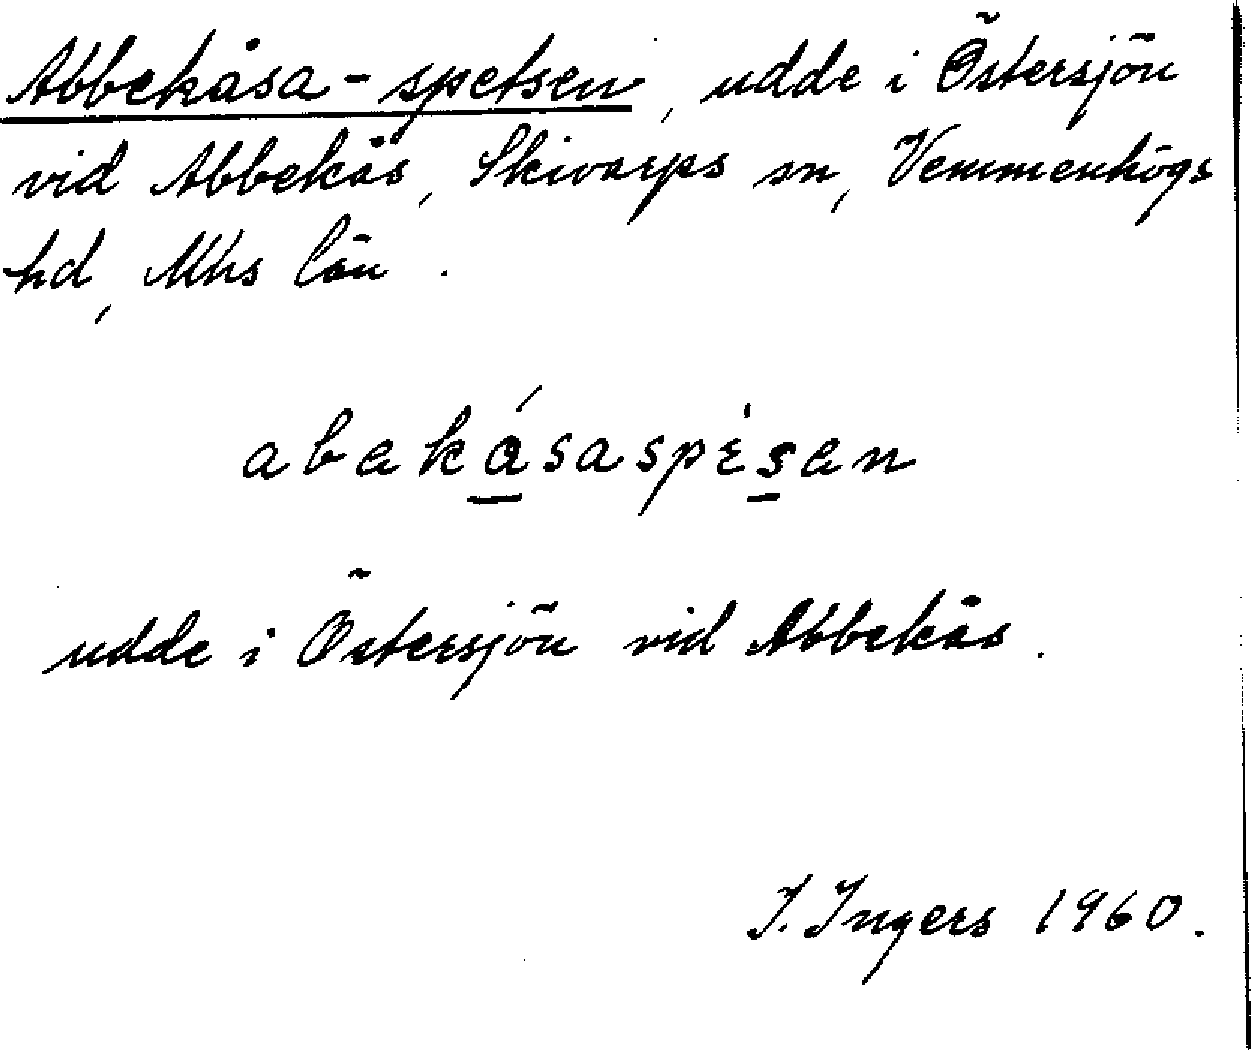 Abbekåsa-spetsen, udde i Östersjön
vid Abbekås, Skivarps sn, Vemmenhögs
hd, Mhs län.
abakásaspèsan
udde i Östersjön vid Abbekås.
I. Ingers 1960.